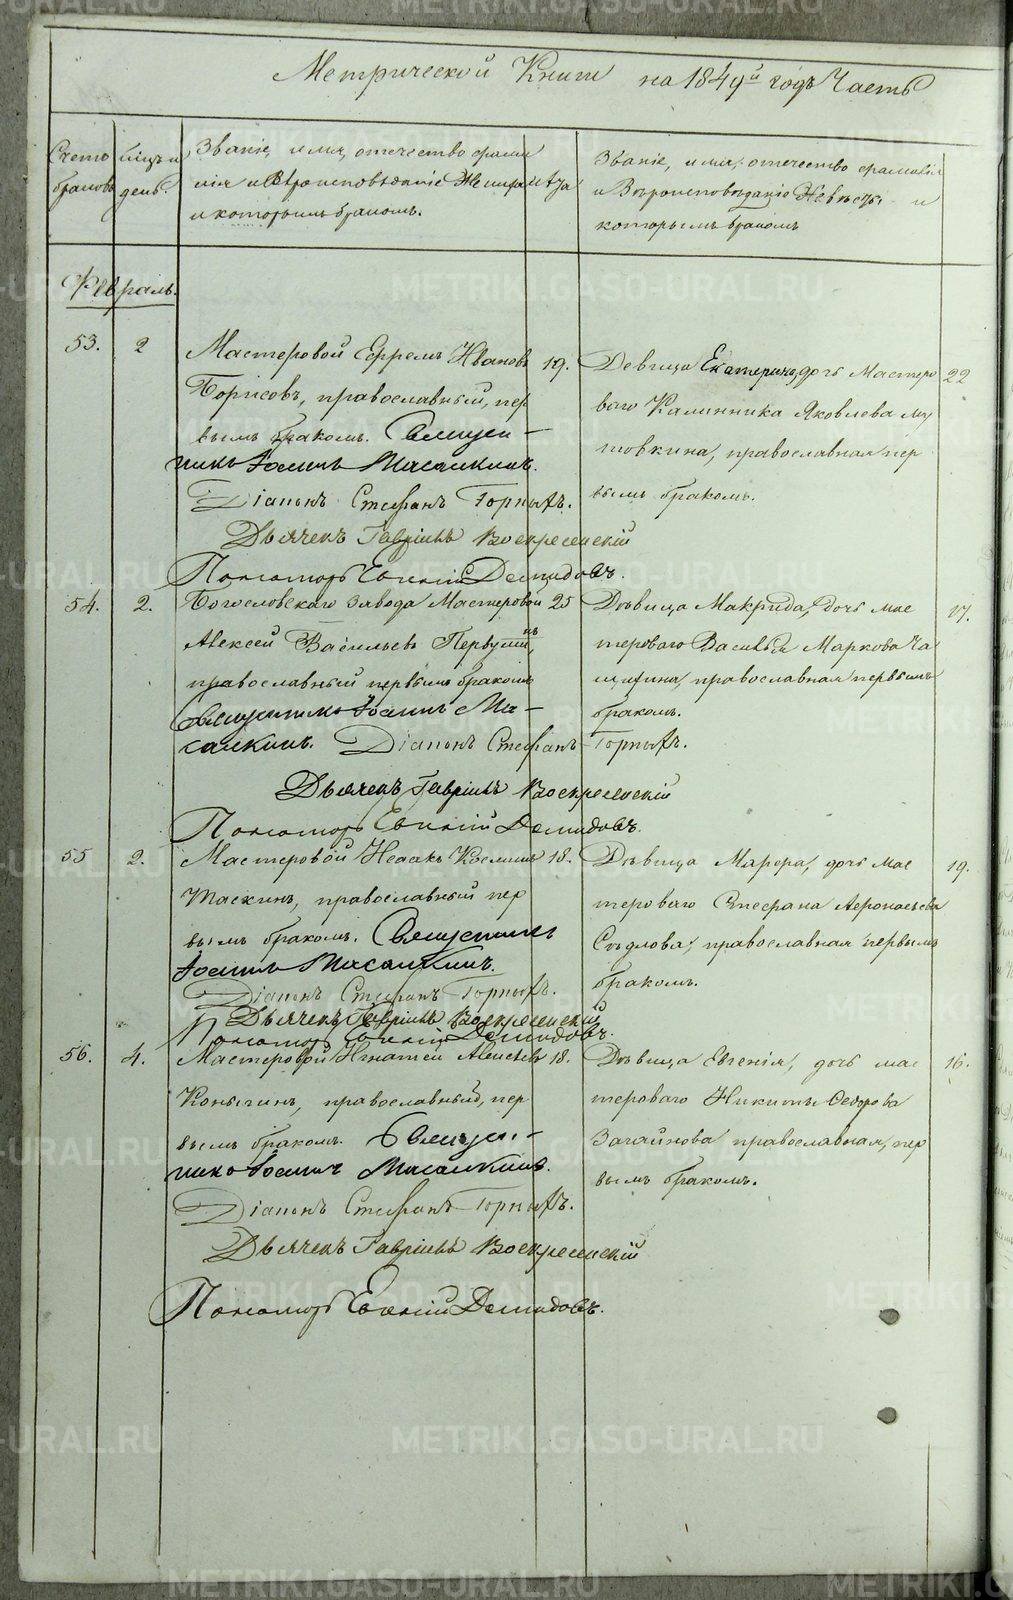 Метрической Книги на 1849й годъ Часть
Счетъ браковъ
мѣсяцъ и день.
Званіе, имя, отечество фами
лія и Вѣроисповѣданіе Жениха
и которымъ бракомъ.
Лѣта
Званіе, имя, отечество фамилія
и Вѣроисповѣданіе Невѣсты и
которымъ бракомъ
Февраль.
53. 2
Мастеровой Ефремъ Ивановъ 19.
Борисовъ, православный, пер
вымъ бракомъ. Священ-
никъ Іоаннъ Масалкинъ.
Діаконъ Стефанъ Горныхъ.
Дьячекъ Гавріилъ Воскресенскій
Пономарь Евгеній Демидовъ.
Девица Екатерина, дочь Мастеро 22
ваго Калинника Яковлева
православная пер
вымъ бракомъ.
54. 2.
Богословскаго завода Мастеровой 25
Алексей Васильевъ Первушинъ,
православный первымъ бракомъ
Священникъ Іоаннъ Ма-
салкинъ. Діаконъ Стефанъ Горныхъ.
Дьячекъ Гавріилъ Воскресенскій
Пономарь Евгеній Демидовъ.
Дѣвица Макрида, дочь мас 17.
тероваго Василья Маркова Ча
щигина, православная первымъ
бракомъ.
55 2.
Мастеровой Исаакъ Козминъ 18.
Таскинъ, православный пер
вымъ бракомъ. Священникъ
Іоаннъ Масалкинъ.
Діаконъ Стефанъ Горныхъ.
Дьячекъ Гавріилъ Воскресенскій
Пономарь Евгеній Демидовъ.
Дѣвица Марфа, дочь мас 19.
тероваго Стефана Афонасьева
Сѣдлова, православная первымъ
бракомъ.
56. 4.
Мастеровой Игнатей Алексѣевъ 18.
Конычинъ, православный, пер
вымъ бракомъ. Священ-
никъ Іоаннъ Масалкинъ.
Діаконъ Стефанъ Горныхъ.
Дьячекъ Гавріилъ Воскресенскій
Пономарь Евгеній Демидовъ.
Дѣвица Евгенія, дочь мас 16.
тероваго Никиты Федорова
Загайнова православная, пер
вымъ бракомъ.
METRIKI.GASO-URAL.RU